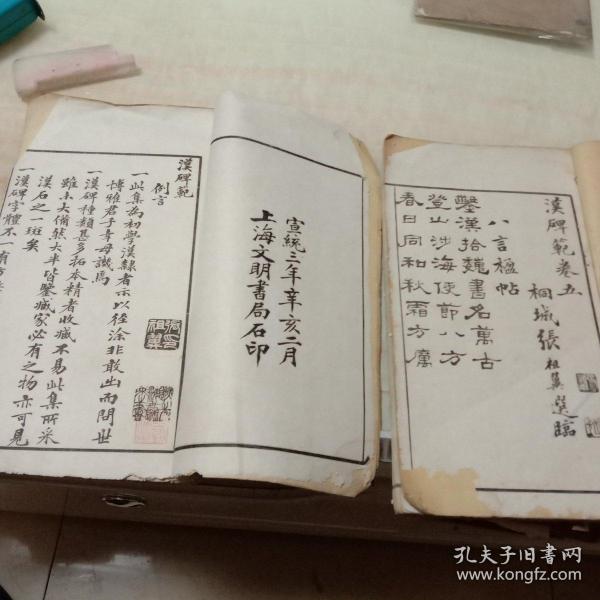 漢碑範卷五
桐城張祖翼選臨
八言楹帖
鑿漢拾魏書名萬古
登山涉海使節八方
春日同和秋霜方厲
宣統三年辛亥二月
上海文明書局石印
漢碑範
例言
一此集為初學漢隸者示以徑涂非敢出而問世
博雅君子幸毋譏焉
一漢碑種類甚多拓本精者收臧不易此集所采
雖未大備然大半皆鑒臧家必有之物亦可見
漢石之一斑矣
一漢碑字體不一有方
張印祖翼
孔夫子旧书网
www.kongfz.com